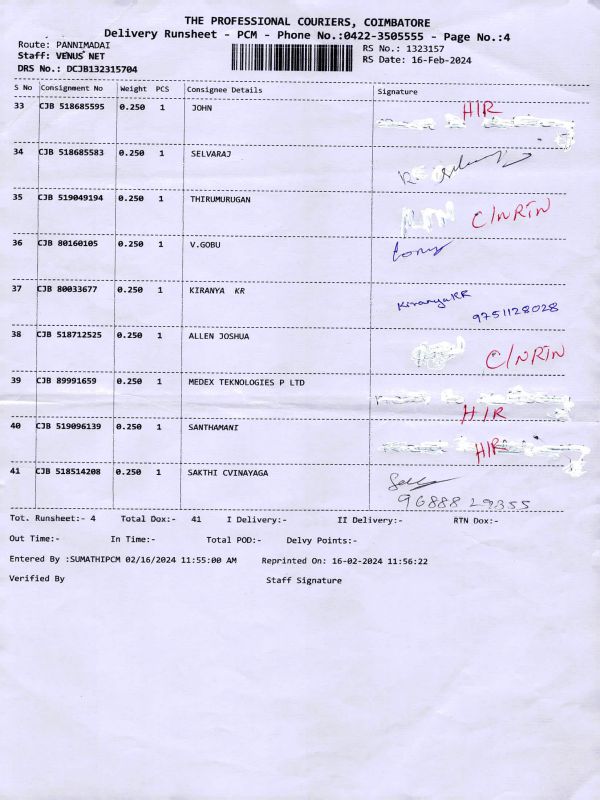 THE PROFESSIONAL COURIERS, COIMBATORE
Delivery Runsheet - PCM - Phone No.:0422-3505555 - Page No.:4
Route: PANNIMADAI
Staff: VENUS NET
DRS No.: DCJB132315704
RS No.: 1323157
RS Date: 16-Feb-2024
S No Consignment No Weight PCS Consignee Details Signature
33 CJB 518685595 0.250 1 JOHN HIR
34 CJB 518685583 0.250 1 SELVARAJ
35 CJB 519049194 0.250 1 THIRUMURUGAN C/NRTN
36 CJB 80160105 0.250 1 V.GOBU
37 CJB 80033677 0.250 1 KIRANYA KR KiranyaKR
9751128028
38 CJB 518712525 0.250 1 ALLEN JOSHUA C/NRTN
39 CJB 89991659 0.250 1 MEDEX TEKNOLOGIES P LTD HIR
40 CJB 519096139 0.250 1 SANTHAMANI HIR
41 CJB 518514208 0.250 1 SAKTHI CVINAYAGA
96888 29355
Tot. Runsheet:- 4 Total Dox:- 41 I Delivery:- II Delivery:- RTN Dox:-
Out Time:- In Time:- Total POD:- Delvy Points:-
Entered By :SUMATHIPCM 02/16/2024 11:55:00 AM Reprinted On: 16-02-2024 11:56:22
Verified By Staff Signature